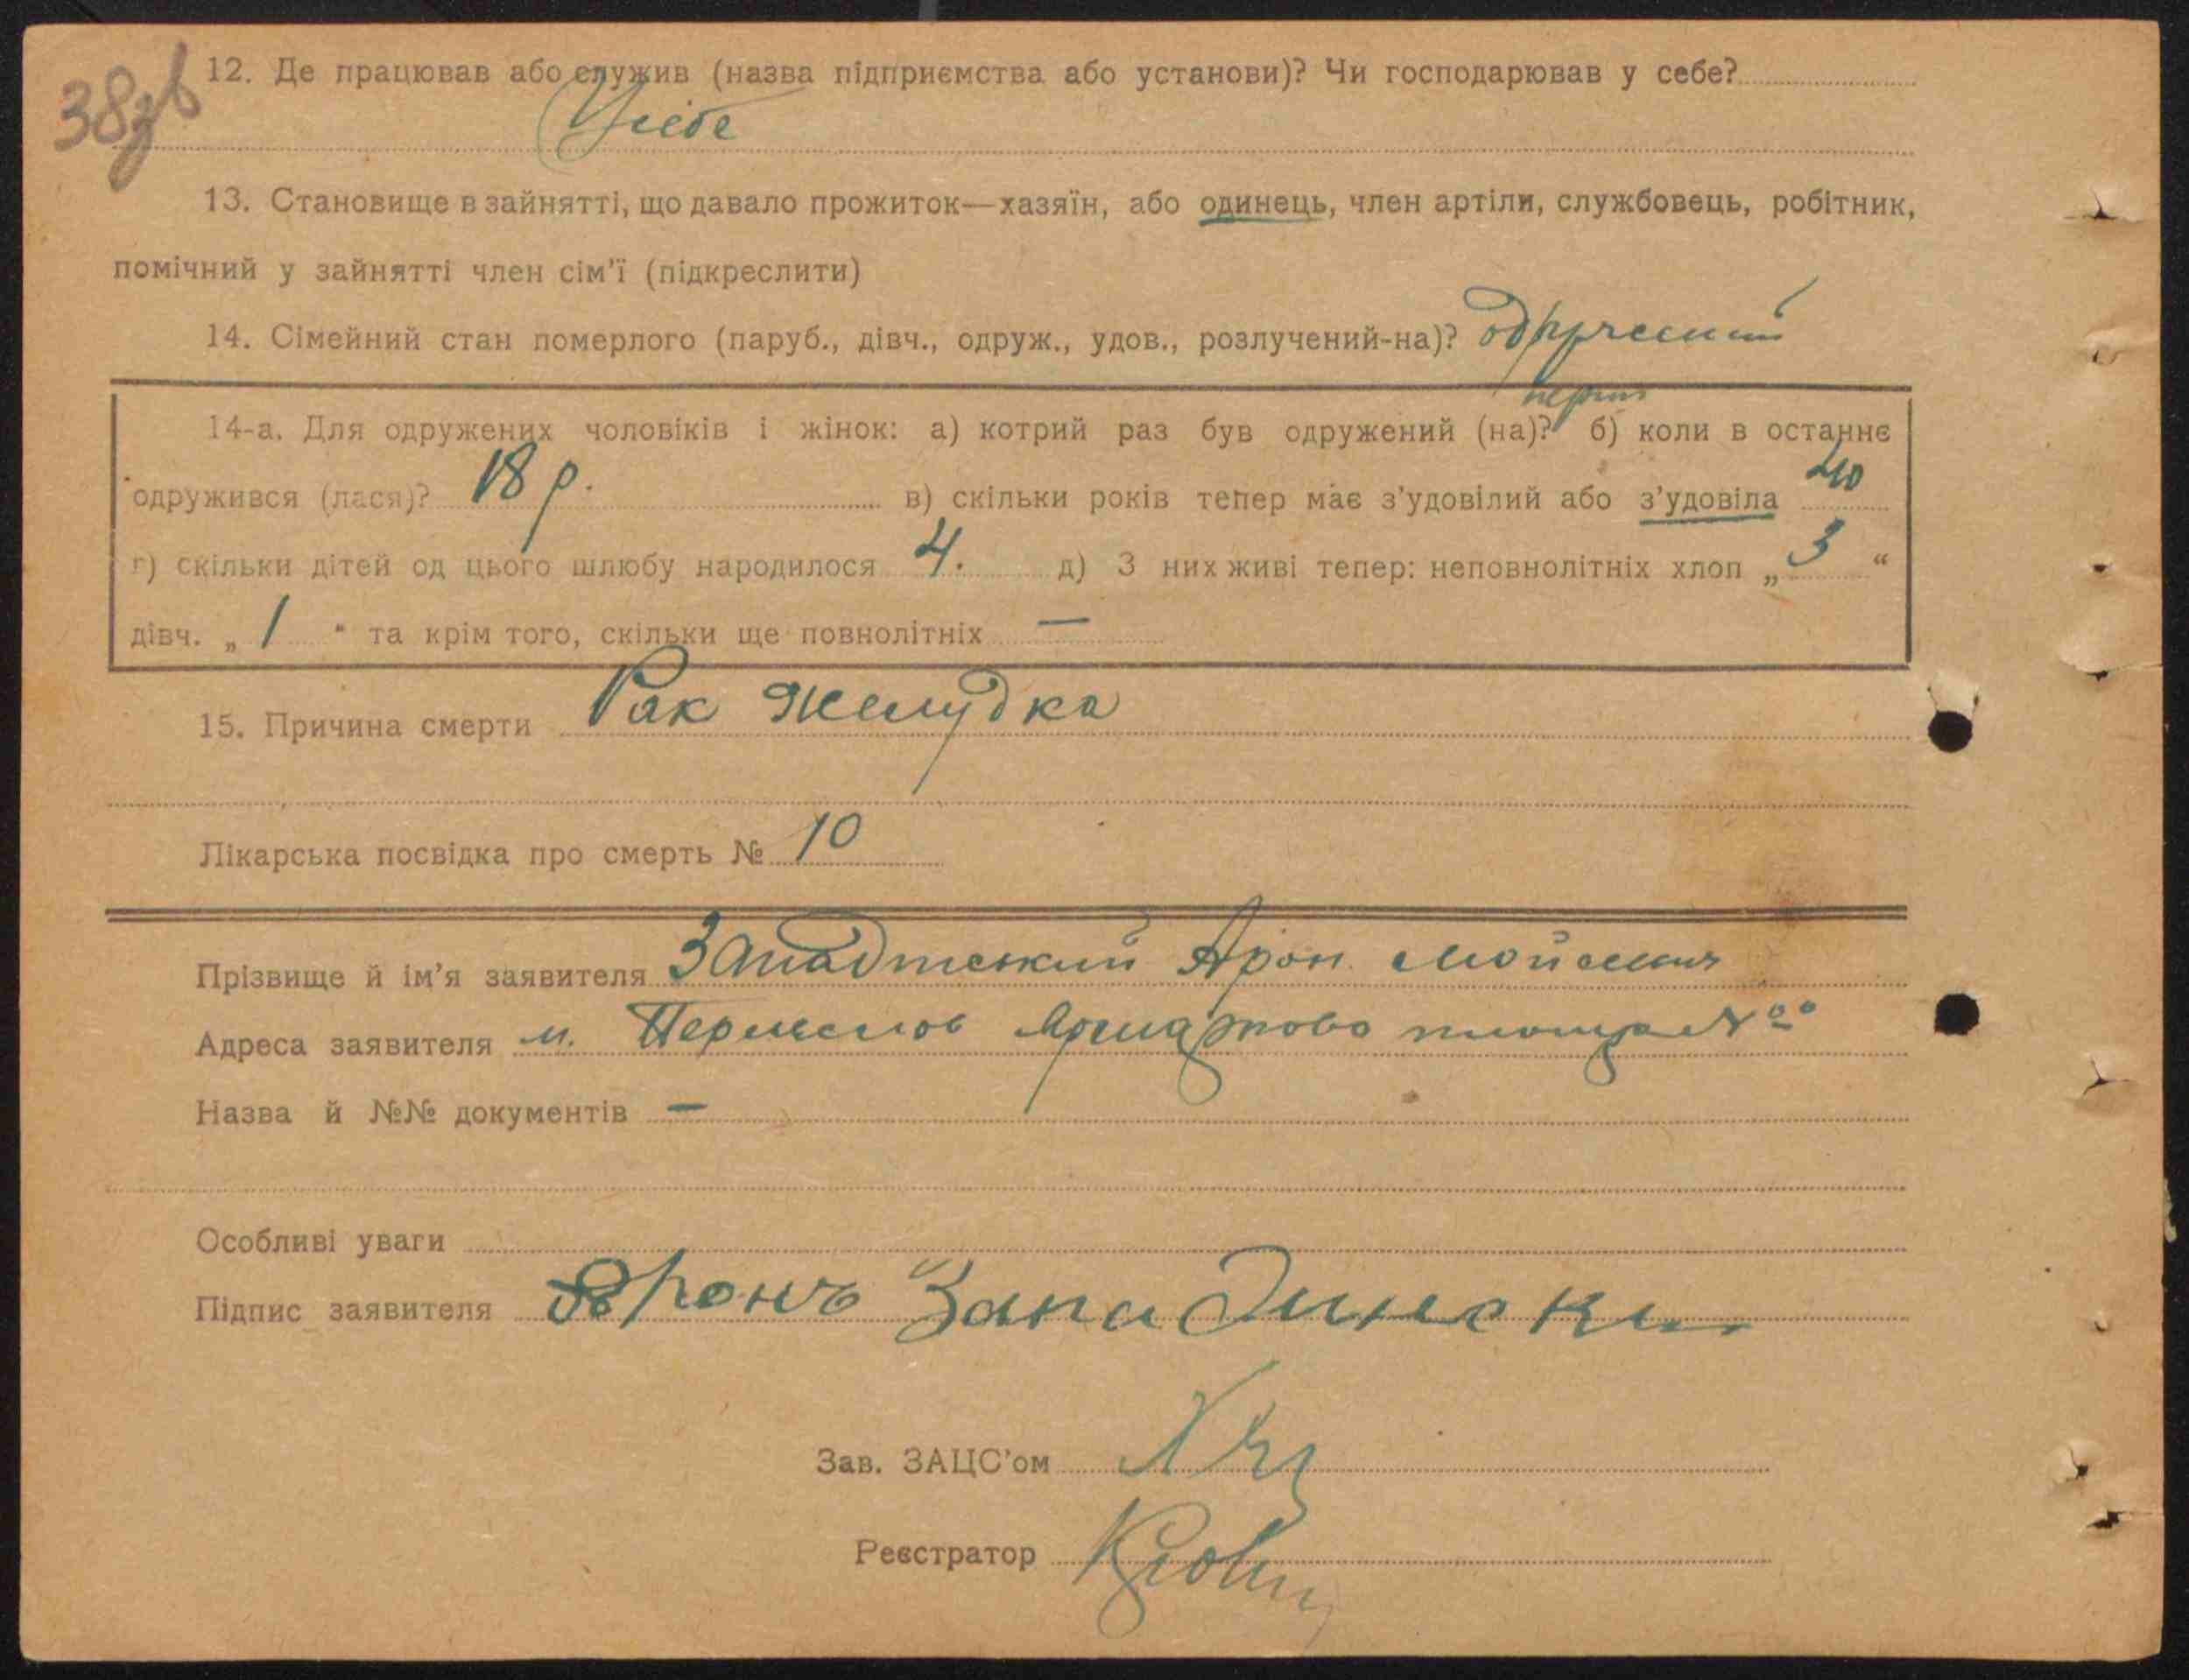 38зв
12. Де працював або служив (назва підприємства або установи)? Чи господарював у себе?
У себе
13. Становище в зайнятті, що давало прожиток—хазяїн, або одинець, член артіли, службовець, робітник,
помічний у зайнятті член сім'ї (підкреслити)
14. Сімейний стан померлого (паруб., дівч., одруж., удов., розлучений-на)? одружений
перший
14-а. Для одружених чоловіків і жінок: а) котрий раз був одружений (на)? б) коли в останнє
одружився (лася)? 18 р. в) скільки років тепер має з'удовілий або з'удовіла 40
г) скільки дітей од цього шлюбу народилося 4. д) З них живі тепер: неповнолітніх хлоп „ 3 “
дівч. „ 1 “ та крім того, скільки ще повнолітніх —
15. Причина смерти Рак желудка
Лікарська посвідка про смерть № 10
Прізвище й ім'я заявителя Арон
Адреса заявителя м. площа №
Назва й №№ документів —
Особливі уваги
Підпис заявителя Аронъ Западински
Зав. ЗАЦС'ом
Реєстратор